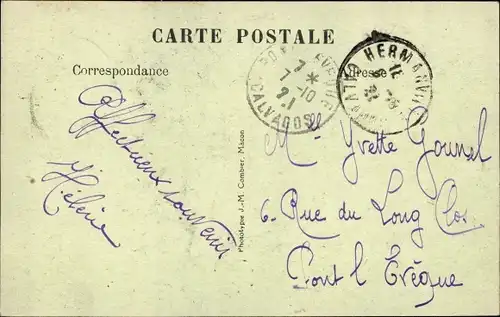 CARTE POSTALE
Correspondance
Adresse
CALVADOS
7 *
7 -10
21
HERMANVI
Affectueux souvenir
Hélène
Phototypie J.-M. Combier, Mâcon
Mlle Yvette
6. Rue du Long Clos
Pont l'Evêque